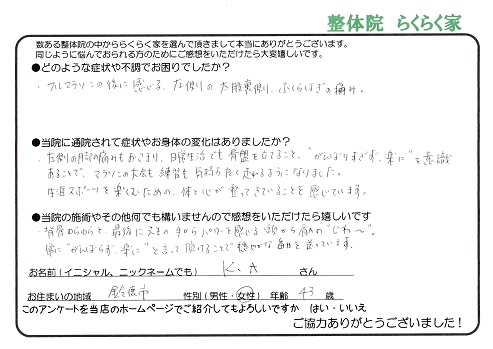 整体院 らくらく家
数ある整体院の中かららくらく家を選んで頂きまして本当にありがとうございます。
同じように悩んでおられる方のためにご感想をいただけたら大変嬉しいです。
●どのような症状や不調でお困りでしたか?
・フルマラソンの後に感じる、左側の太股裏側、ふくらはぎの痛み。
●当院に通院されて症状やお身体の変化はありましたか?
・左側の脚の痛みもおさまり、日常生活でも骨盤を立てること、"がんばりすぎず、楽に"を意識
あることで、マラソンの大会も練習も気持ちよく走れるようになりました。
生涯スポーツを楽しむための、体と心が整ってきていることを感じています。
●当院の施術やその他何でも構いませんので感想をいただけたら嬉しいです
・背骨ゆらゆらと、最後に先生の手からパワーを感じる頭から肩の"じわ〜"。
常に"がんばらず、楽に"と言って頂けることで穏やかな毎日を送っています。
お名前(イニシャル、ニックネームでも) K.A さん
お住まいの地域 市 性別(男性・女性) 年齢 43 歳
このアンケートを当店のホームページでご紹介してもよろしいですか はい・いいえ
ご協力ありがとうございました!